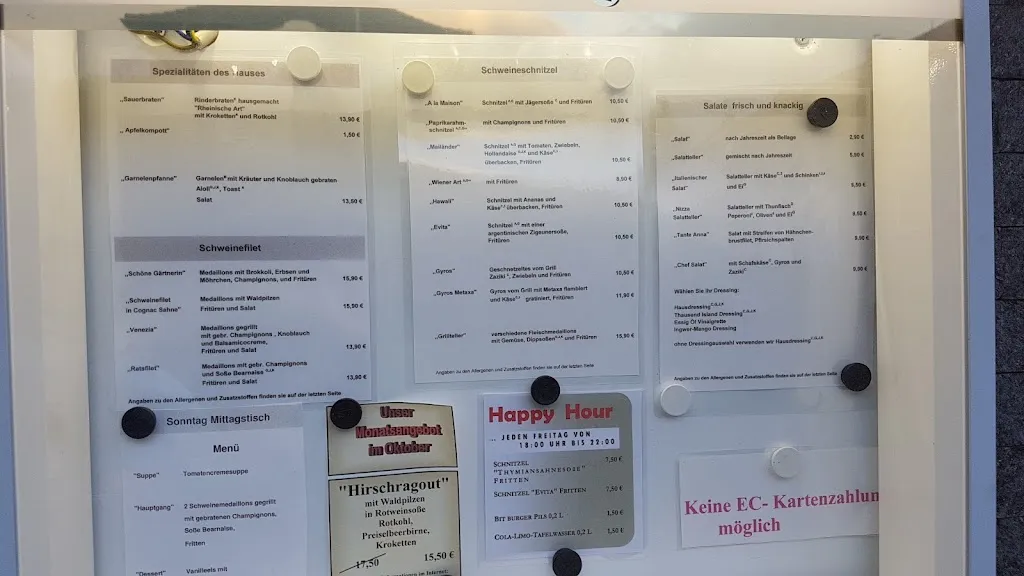 Spezialitäten des Hauses
„Sauerbraten" Rinderbraten hausgemacht
"Rheinische Art"
mit Kroketten und Rotkohl 13,90 €
„Apfelkompott" 1,50 €
„Garnelenpfanne" Garnelen mit Kräuter und Knoblauch gebraten
Aioli, Toast
Salat 13,50 €
Schweinefilet
„Schöne Gärtnerin" Medaillons mit Brokkoli, Erbsen und
Möhrchen, Champignons, und Fritüren 15,90 €
„Schweinefilet Medaillons mit Waldpilzen
in Cognac Sahne" Fritüren und Salat 15,90 €
„Venezia" Medaillons gegrillt
mit gebr. Champignons , Knoblauch
und Balsamicocreme,
Fritüren und Salat 13,90 €
„Ratsfilet" Medaillons mit gebr. Champignons
und Soße Bearnaise
Fritüren und Salat 13,90 €
Angaben zu den Allergenen und Zusatzstoffen finden sie auf der letzten Seite
Schweineschnitzel
„A la Maison" Schnitzel mit Jägersoße und Fritüren 10,50 €
„Paprikarahm-
schnitzel mit Champignons und Fritüren 10,50 €
„Mailänder" Schnitzel mit Tomaten, Zwiebeln,
Hollandaise und Käse
überbacken, Fritüren 10,50 €
„Wiener Art mit Fritüren 9,50 €
„Hawaii" Schnitzel mit Ananas und
Käse überbacken, Fritüren 10,50 €
„Evita" Schnitzel mit einer
argentinischen Zigeunersoße,
Fritüren 10,50 €
„Gyros" Geschnetzeltes vom Grill
Zaziki , Zwiebeln und Fritüren 10,50 €
„Gyros Metaxa" Gyros vom Grill mit Metaxa flambiert
und Käse gratiniert, Fritüren 11,90 €
„Grillteller" verschiedene Fleischmedaillons
mit Gemüse, Dippsoßen und Fritüren 15,90 €
Angaben zu den Allergenen und Zusatzstoffen finden sie auf der letzten Seite
Salate frisch und knackig
„Salat" nach Jahreszeit als Beilage 2,90 €
„Salatteller" gemischt nach Jahreszeit 5,90 €
„Italienischer Salatteller mit Käse und Schinken
Salat" und Ei 8,50 €
„Nizza Salatteller mit Thunfisch
Salatteller" Peperoni, Oliven und Ei 9,50 €
„Tante Anna" Salat mit Streifen von Hähnchen-
brustfilet, Pfirsichspalten 9,90 €
„Chef Salat" mit Schafskäse, Gyros und
Zaziki 9,90 €
Wählen Sie ihr Dressing:
Hausdressing
Thausend Island Dressing
Essig Öl Vinaigrette
Ingwer-Mango Dressing
ohne Dressingauswahl verwenden wir Hausdressing
Angaben zu den Allergenen und Zusatzstoffen finden sie auf der letzten Seite
Sonntag Mittagstisch
Menü
"Suppe" Tomatencremesuppe
"Hauptgang" 2 Schweinemedaillons gegrillt
mit gebratenen Champignons,
Soße Bearnaise,
Fritten
"Dessert" Vanilleeis mit
Unser
Monatsangebot
im Oktober
"Hirschragout"
mit Waldpilzen
in Rotweinsoße
Rotkohl,
Preiselbeerbirne,
Kroketten
17,50 15,50 €
im Internet:
Happy Hour
... JEDEN FREITAG VON
18:00 UHR BIS 22:00
SCHNITZEL 7,50 €
"THYMIANSAHNESOSE"
FRITTEN
SCHNITZEL "EVITA" FRITTEN 7,50 €
BITBURGER PILS 0,2 L 1,50 €
COLA-LIMO-TAFELWASSER 0,2 L 1,50 €
Keine EC- Kartenzahlun
möglich